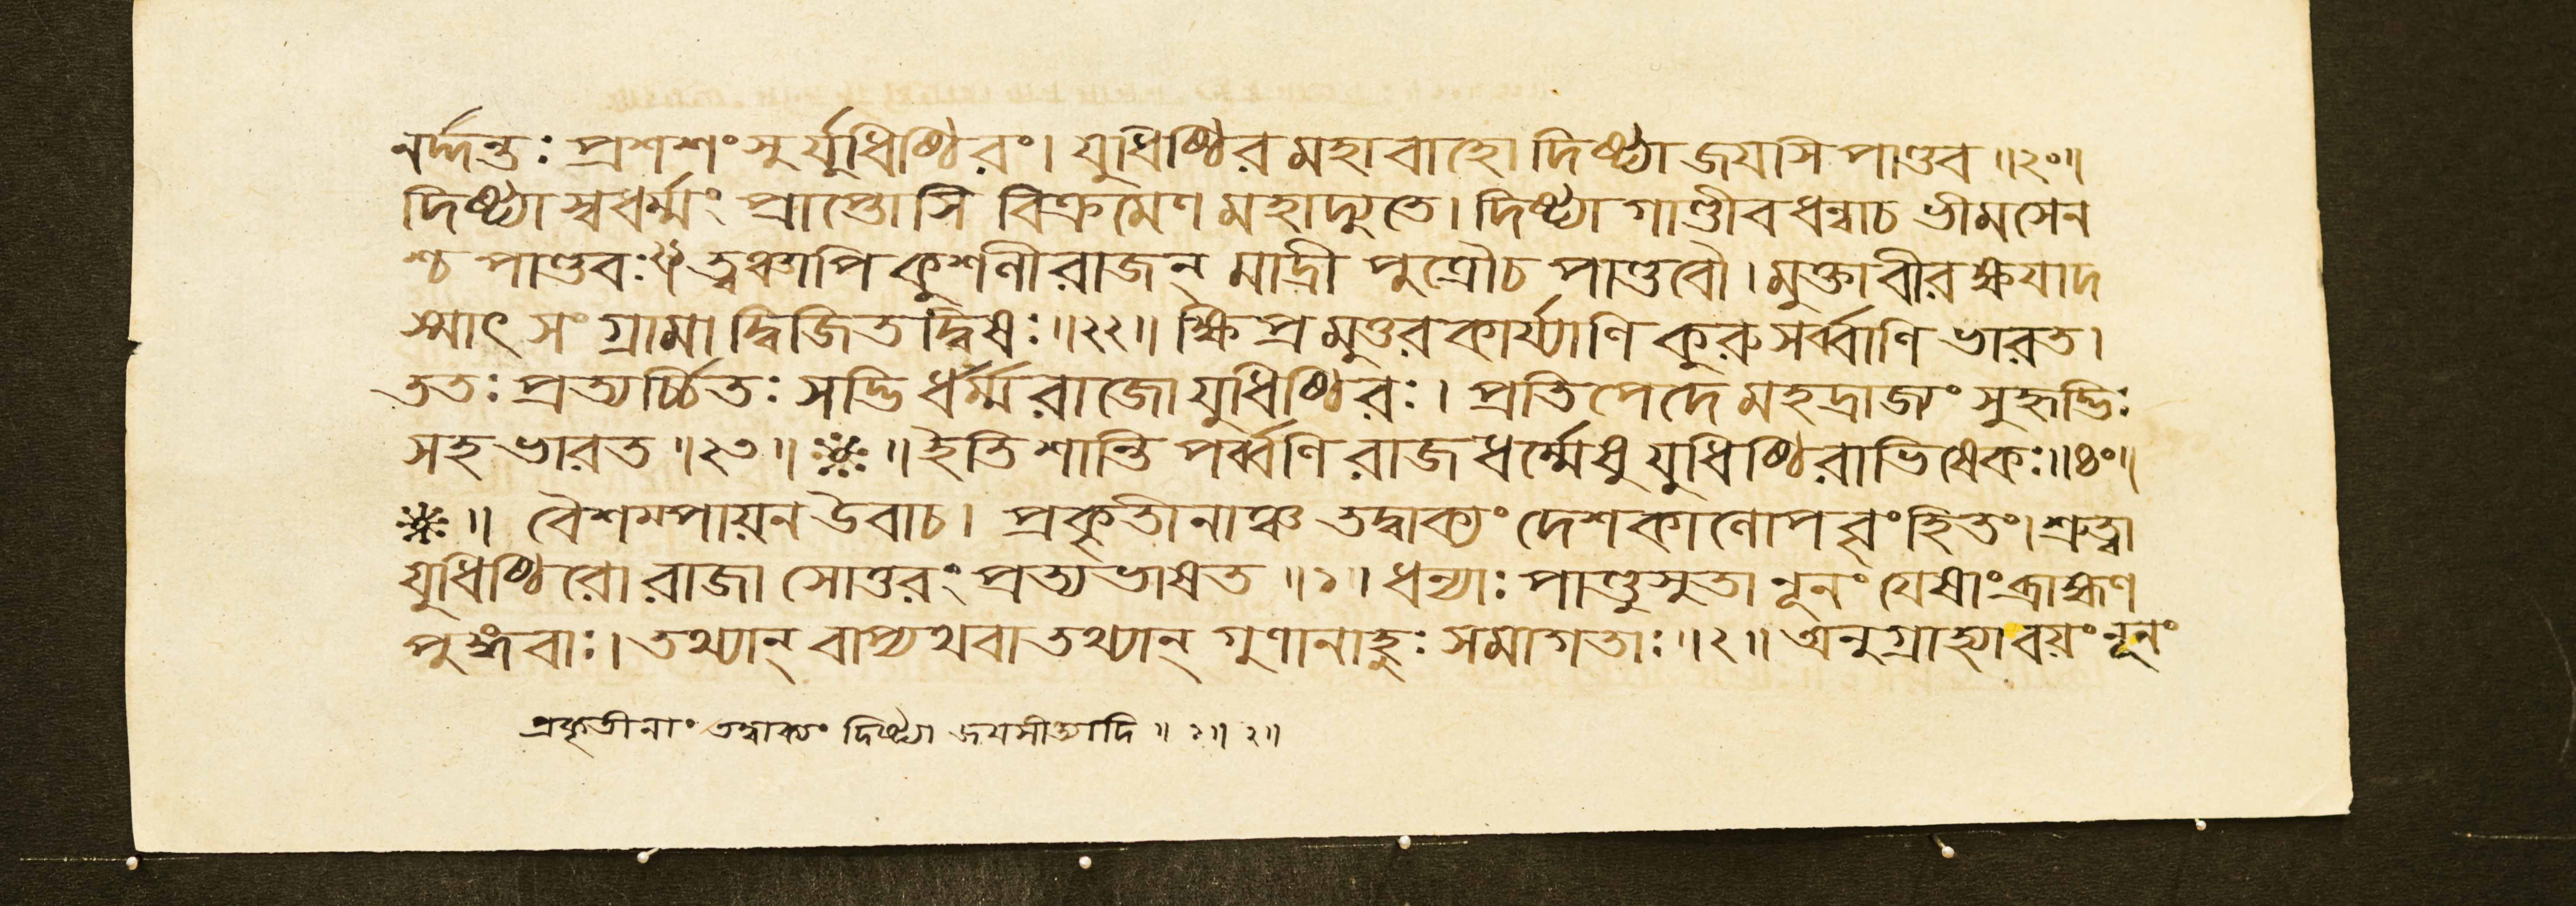 নর্দ্দন্তঃ প্রশশংসুর্যুধিষ্ঠিরং। যুধিষ্ঠির মহাবাহো দিষ্ট্যা জয়সি পাণ্ডব ॥২০॥
দিষ্ট্যা স্বধর্ম্মং প্রাপ্তোসি বিক্রমেণ মহাদ্যুতে। দিষ্ট্যা গাণ্ডীবধন্বাচ ভীমসেন
শ্চ পাণ্ডবঃ ত্বঞ্চাপি কুশলী রাজন্ মাদ্রী পুত্রৌচ পাণ্ডবৌ। মুক্তা বীরক্ষয়াদ
স্মাৎ সংগ্রামা দ্বিজিতদ্বিষঃ ॥২২॥ ক্ষিপ্রমুত্তরকার্য্যাণি কুরু সর্ব্বাণি ভারত।
ততঃ প্রত্যর্চ্চিতঃ সদ্ভি র্ধর্ম্মরাজো যুধিষ্ঠিরঃ। প্রতিপেদে মহদ্রাজ্যং সুহৃদ্ভিঃ
সহ ভারত ॥২৩॥ ※ ॥ ইতি শান্তি পর্ব্বণি রাজধর্ম্মেষু যুধিষ্ঠিরাভিষেকঃ ॥৪০॥
※ ॥ বৈশম্পায়ন উবাচ। প্রকৃতীনাঞ্চ তদ্বাক্যং দেশকালোপবৃংহিতং। শ্রুত্বা
যুধিষ্ঠিরো রাজা সোত্তরং প্রত্যভাষত ॥১॥ ধন্যাঃ পাণ্ডুসুতা নূনং যেষাং ব্রাহ্মণ
পুঙ্গবাঃ। তথ্যান্ বাপ্যথবাতথ্যান্ গুণানাহুঃ সমাগতাঃ ॥২॥ অনুগ্রাহ্যা বয়ং নূনং
প্রকৃতীনাং তদ্বাক্যং দিষ্ট্যা জয়সীত্যাদি ॥ ১॥ ২॥